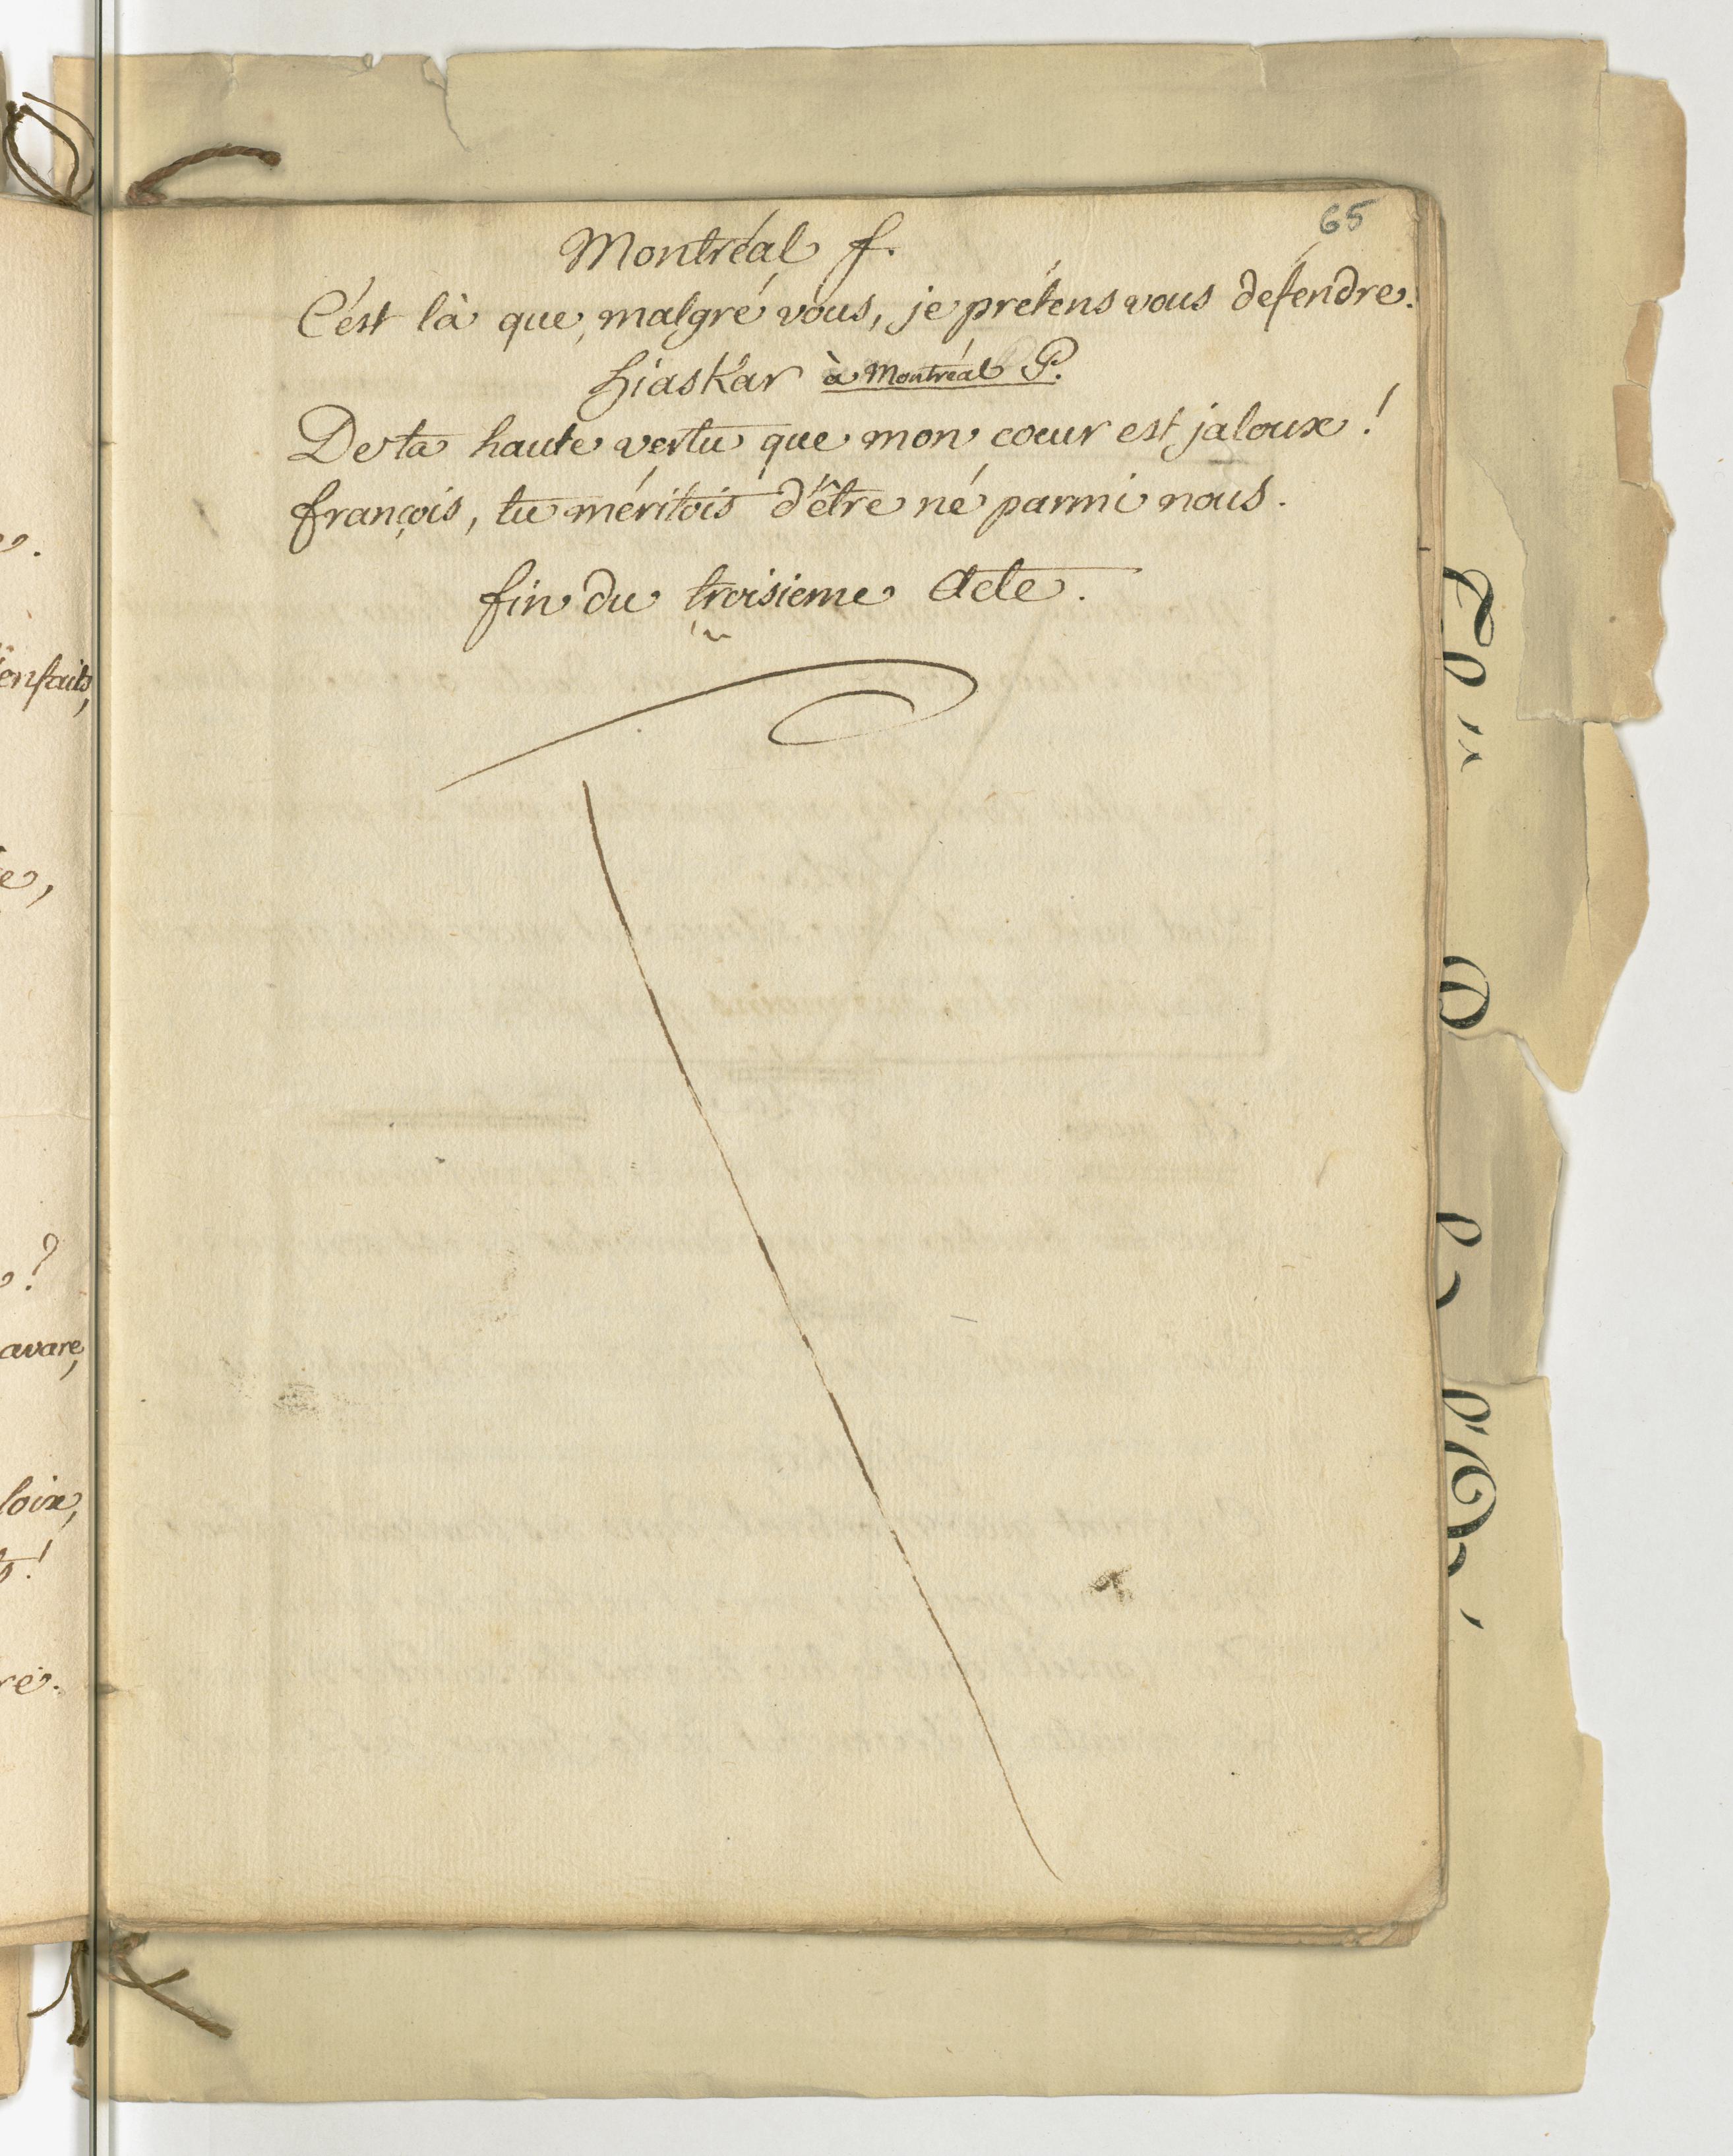 65
Montréal f.
C'est là que, malgré vous, je prétens vous défendre.
hiaskar à Montréal P.
De ta haute vertu que mon coeur est jaloux !
françois, tu méritois d'être né parmi nous.
fin du troisieme Acte.
enfaits,
e,
?
avare,
loix,
!
re.